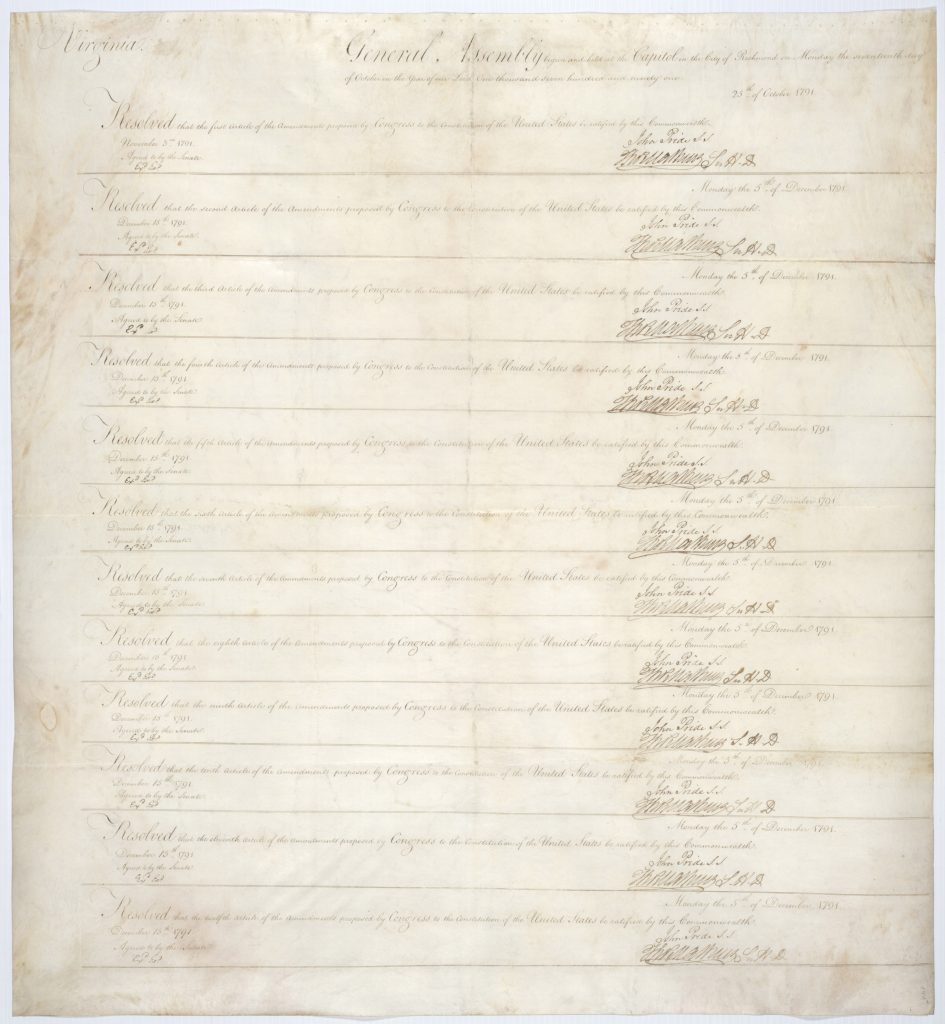 Virginia.
General Assembly begun and held at the Capitol in the City of Richmond on Monday the seventeenth day
of October in the Year of our Lord One thousand seven hundred and ninety one.
25th of October 1791.
Resolved that the first Article of the Amendments proposed by Congress to the Constitution of the United States be ratified by this Commonwealth.
November 3d 1791.
Agreed to by the Senate.
John Pride S.S
S. H. D
Monday the 5th of December 1791.
Resolved that the second Article of the Amendments proposed by Congress to the Constitution of the United States be ratified by this Commonwealth.
December 15th 1791.
Agreed to by the Senate.
John Pride S.S
S. H. D
Monday the 5th of December 1791.
Resolved that the third Article of the Amendments proposed by Congress to the Constitution of the United States be ratified by this Commonwealth.
December 15th 1791.
Agreed to by the Senate.
John Pride S.S
S. H. D
Monday the 5th of December 1791.
Resolved that the fourth Article of the Amendments proposed by Congress to the Constitution of the United States be ratified by this Commonwealth.
December 15th 1791.
Agreed to by the Senate.
John Pride S.S
S. H. D
Monday the 5th of December 1791.
Resolved that the fifth Article of the Amendments proposed by Congress to the Constitution of the United States be ratified by this Commonwealth.
December 15th 1791.
Agreed to by the Senate.
John Pride S.S
S. H. D
Monday the 5th of December 1791.
Resolved that the sixth Article of the Amendments proposed by Congress to the Constitution of the United States be ratified by this Commonwealth.
December 15th 1791.
Agreed to by the Senate.
John Pride S.S
S. H. D
Monday the 5th of December 1791.
Resolved that the seventh Article of the Amendments proposed by Congress to the Constitution of the United States be ratified by this Commonwealth.
December 15th 1791.
Agreed to by the Senate.
John Pride S.S
S. H. D
Monday the 5th of December 1791.
Resolved that the eighth Article of the Amendments proposed by Congress to the Constitution of the United States be ratified by this Commonwealth.
December 15th 1791.
Agreed to by the Senate.
John Pride S.S
S. H. D
Monday the 5th of December 1791.
Resolved that the ninth Article of the Amendments proposed by Congress to the Constitution of the United States be ratified by this Commonwealth.
December 15th 1791.
Agreed to by the Senate.
John Pride S.S
S. H. D
Monday the 5th of December 1791.
Resolved that the tenth Article of the Amendments proposed by Congress to the Constitution of the United States be ratified by this Commonwealth.
December 15th 1791.
Agreed to by the Senate.
John Pride S.S
S. H. D
Monday the 5th of December 1791.
Resolved that the eleventh Article of the Amendments proposed by Congress to the Constitution of the United States be ratified by this Commonwealth.
December 15th 1791.
Agreed to by the Senate.
John Pride S.S
S. H. D
Monday the 5th of December 1791.
Resolved that the twelfth Article of the Amendments proposed by Congress to the Constitution of the United States be ratified by this Commonwealth.
December 15th 1791
Agreed to by the Senate.
John Pride S.S
S. H. D